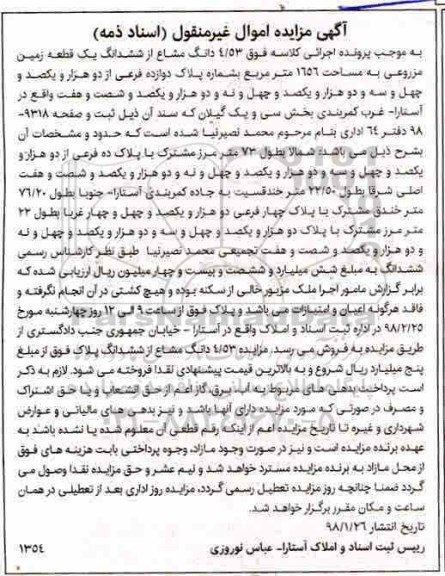 آگهی مزایده اموال غیرمنقول (اسناد ذمه)
به موجب پرونده اجرائی کلاسه فوق ۴/۵۳ دانگ مشاع از ششدانگ یک قطعه زمین
مزروعی به مساحت ۱۶۵۶ متر مربع بشماره پلاک دوازده فرعی از دو هزار و یکصد و
چهل و سه و دو هزار و یکصد و چهل و نه و دو هزار و یکصد و شصت و هفت واقع در
آستارا- غرب کمربندی بخش سی و یک گیلان که سند آن ذیل ثبت و صفحه ۹۳۱۸-
۹۸ دفتر ۶۴ اداری بنام مرحوم محمد نصیرنیا شده است که حدود و مشخصات آن
بشرح ذیل می باشد: شمالا بطول ۷۳ متر مرز مشترک با پلاک ده فرعی از دو هزار و
یکصد و چهل و سه و دو هزار و یکصد و چهل و نه و دو هزار و یکصد و شصت و هفت
اصلی شرقا بطول ۲۲/۵۰ متر خندقسیت به جاده کمربندی آستارا- جنوبا بطول ۷۶/۲۰
متر خندق مشترک با پلاک چهار فرعی دو هزار و یکصد و چهل و چهار غربا بطول ۲۲
متر مرز مشترک با پلاک دو هزار و یکصد و چهل و سه و دو هزار و یکصد و چهل و نه
و دو هزار و یکصد و شصت و هفت تجمیعی محمد نصیرنیا طبق نظر کارشناس رسمی
ششدانگ به مبلغ شش میلیارد و ششصد و بیست و چهار میلیون ریال ارزیابی شده که
برابر گزارش مامور اجرا ملک مزبور خالی از سکنه بوده و هیچ کشتی در آن انجام نگرفته و
فاقد هرگونه اعیان و امتیازات می باشد و پلاک فوق از ساعت ۹ الی ۱۲ روز چهارشنبه مورخ
۹۸/۲/۲۵ در اداره ثبت اسناد و املاک واقع در آستارا - خیابان جمهوری جنب دادگستری از
طریق مزایده به فروش می رسد. مزایده ۴/۵۳ دانگ مشاع از ششدانگ پلاک فوق از مبلغ
پنج میلیارد ریال شروع و به بالاترین قیمت پیشنهادی نقدا فروخته می شود. لازم به ذکر
است پرداخت بدهی های مربوط به آب، برق، گاز اعم از حق انشعاب و یا حق اشتراک
و مصرف در صورتی که مورد مزایده دارای آنها باشد و نیز بدهی های مالیاتی و عوارض
شهرداری و غیره تا تاریخ مزایده اعم از اینکه رقم قطعی آن معلوم شده یا نشده باشد به
عهده برنده مزایده است و نیز در صورت وجود مازاد، وجوه پرداختی بابت هزینه های فوق
از محل مازاد به برنده مزایده مسترد خواهد شد و نیم عشر و حق مزایده نقدا وصول می
گردد ضمنا چنانچه روز مزایده تعطیل رسمی گردد، مزایده روز اداری بعد از تعطیلی در همان
ساعت و مکان مقرر برگزار خواهد شد.
تاریخ انتشار ۹۸/۱/۲۶
رییس ثبت اسناد و املاک آستارا- عباس نوروزی ۱۳۵۴